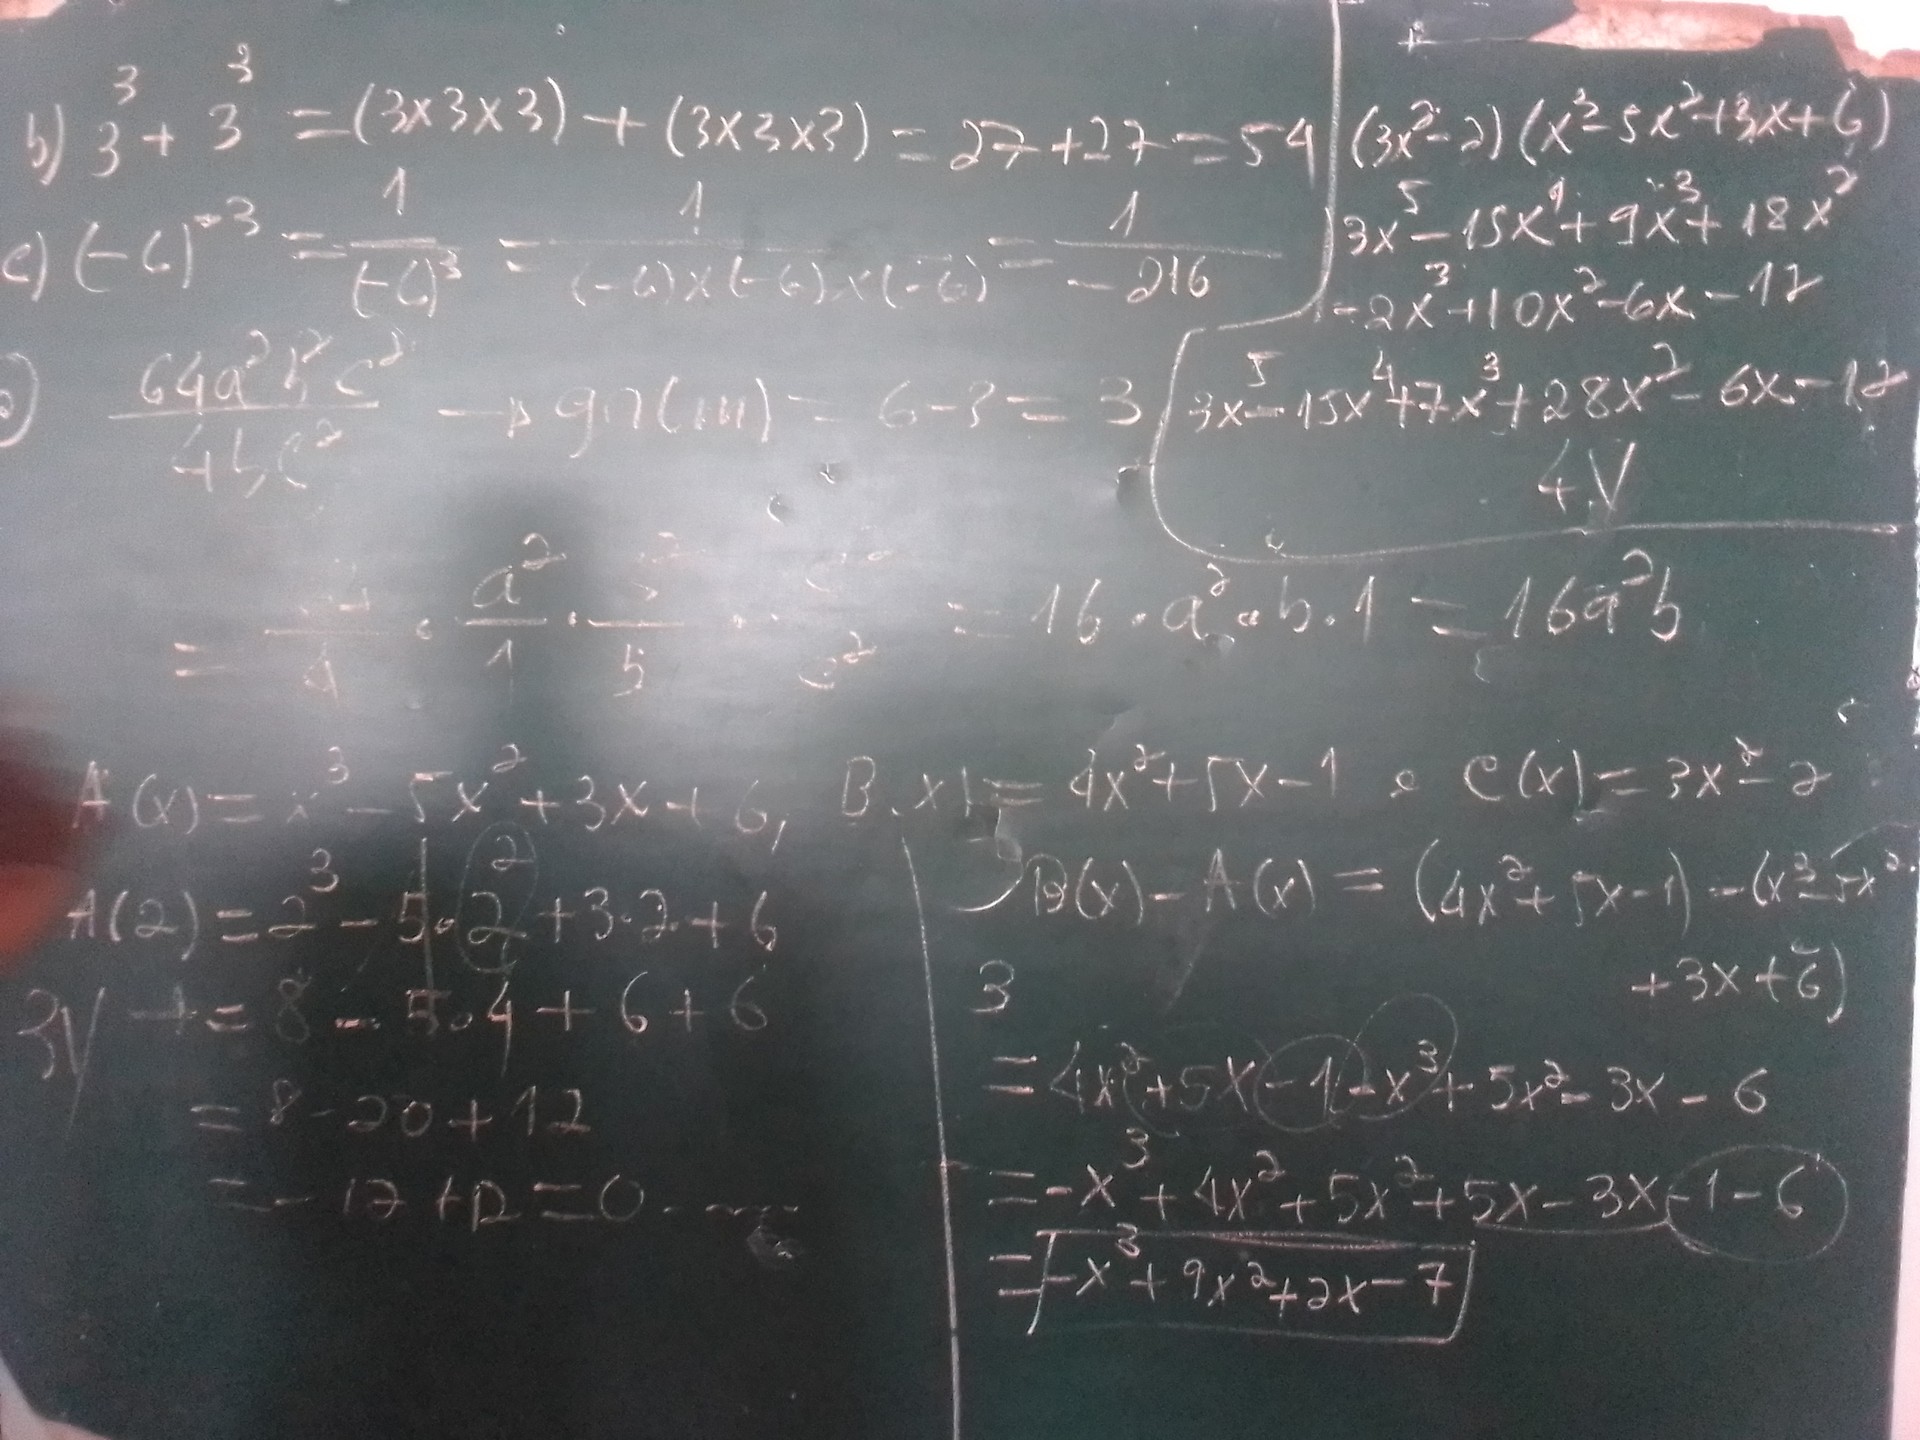 b) 3³ + 3³ = (3x3x3) + (3x3x3) = 27 + 27 = 54
c) (-6)⁻³ = 1/(-6)³ = 1/((-6)x(-6)x(-6)) = 1/-216
64a²b²c²/4bc² → gr(m) = 6-3 = 3
= /4 · a²/1 · /b · /c² = 16 · a² · b · 1 = 16a²b
(3x²-2)(x³-5x²+3x+6)
3x⁵-15x⁴+9x³+18x²
-2x³+10x²-6x-12
3x⁵-15x⁴+7x³+28x²-6x-12
4V
A(x) = x³-5x²+3x+6, B(x) = 4x²+5x-1 e C(x) = 3x²-2
A(2) = 2³-5·2²+3·2+6
3V → = 8-5·4+6+6
= 8-20+12
= -12+12 = 0
B(x)-A(x) = (4x²+5x-1)-(x³-5x²
+3x+6)
3
= 4x²+5x-1-x³+5x²-3x-6
= -x³+4x²+5x²+5x-3x-1-6
= -x³+9x²+2x-7